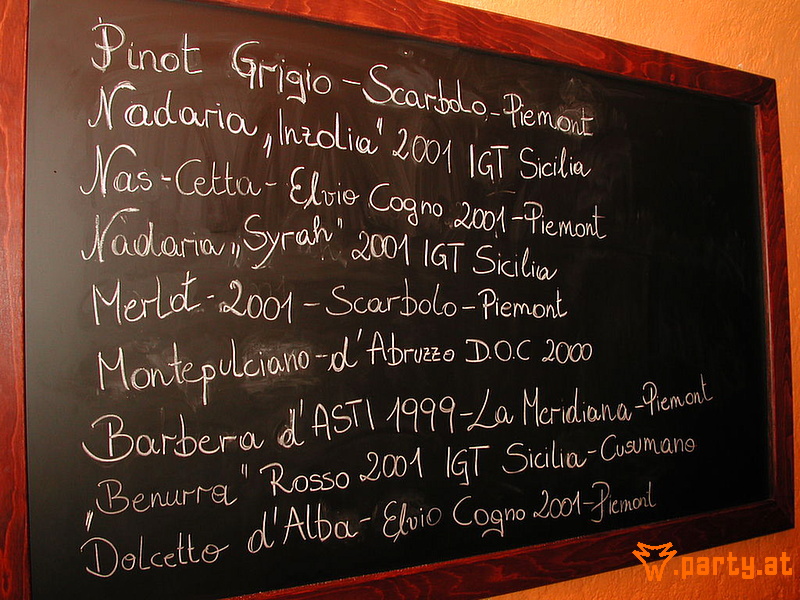 Pinot Grigio - Scarbolo - Piemont
Nadaria „Inzolia" 2001 IGT Sicilia
Nas-Cetta - Elvio Cogno 2001 - Piemont
Nadaria „Syrah" 2001 IGT Sicilia
Merlot - 2001 - Scarbolo - Piemont
Montepulciano - d'Abruzzo D.O.C 2000
Barbera d'ASTI 1999 - La Meridiana - Piemont
„Benurra" Rosso 2001 IGT Sicilia - Cusumano
Dolcetto d'Alba - Elvio Cogno 2001 - Piemont
.party.at